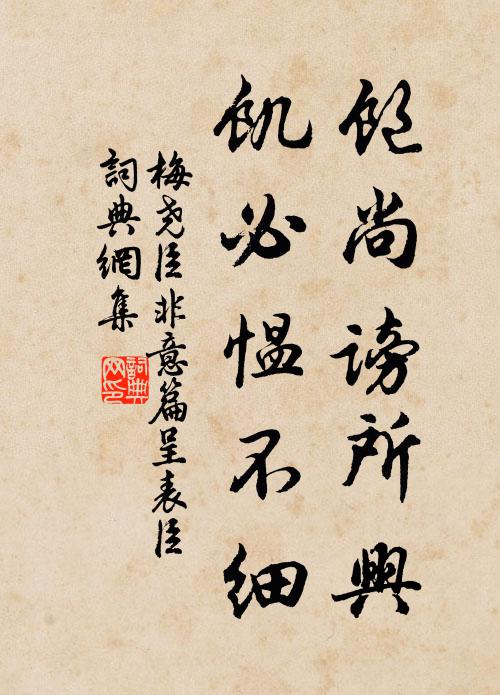 飽尚謗所興
飢必慍不細
梅堯臣非意篇呈表臣
詞典網集
詞典网印